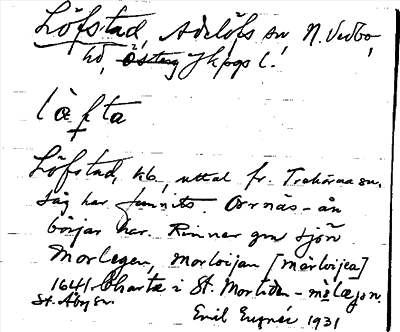 Löfstad, Adelöfs sn N. Vedbo,
hd, Jkpgs l.
lȧfta
Löfstad, kb, uttal fr. Trehörna sn.
Såg har funnits. Orrnäs-ån
börjar här. Rinner gm sjön
Morlegen, Morloijan [mårloijea]
1641 Charta i St. Mortiden
St. Åby sn
Emil 1931